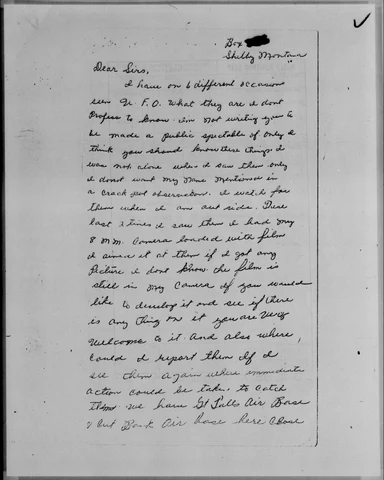 Box
Shelby Montana
Dear Sirs,
I have on 6 different occasion
seen U.F.O. What they are I dont
Profess to know. I'm not writing you to
be made a public spectable of only I
think you should know these things I
was not alone when I saw them only
I dont want my Name Mentioned in
a crack Pot observation. I watch for
them when I am out side. These
last 2 times I saw them I had my
8 M.M. Camera loaded with film
I aimed it at them if I got any
Picture I dont know. the film is
still in my Camera if you would
like to develop it and see if there
is any thing on it you are very
Welcome to it. And also where,
Could I report them if I
see them again where immediate
action could be taken to catch
them We have Gt Falls Air Base
& Cut Bank Air base here Close